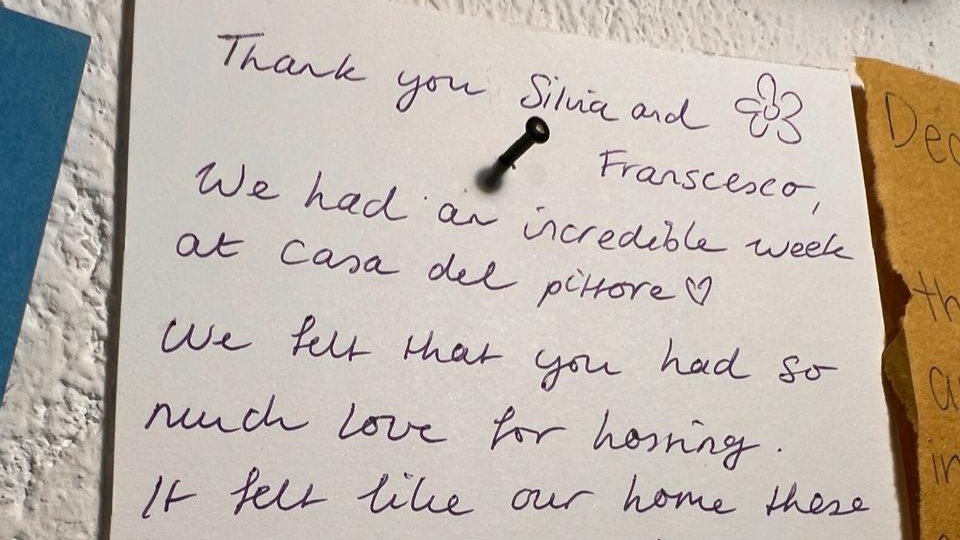 Thank you Silvia and
Franscesco,
We had an incredible week
at casa del pittore ♡
We felt that you had so
much love for hosting.
It felt like our home these
Dec
th
a
in